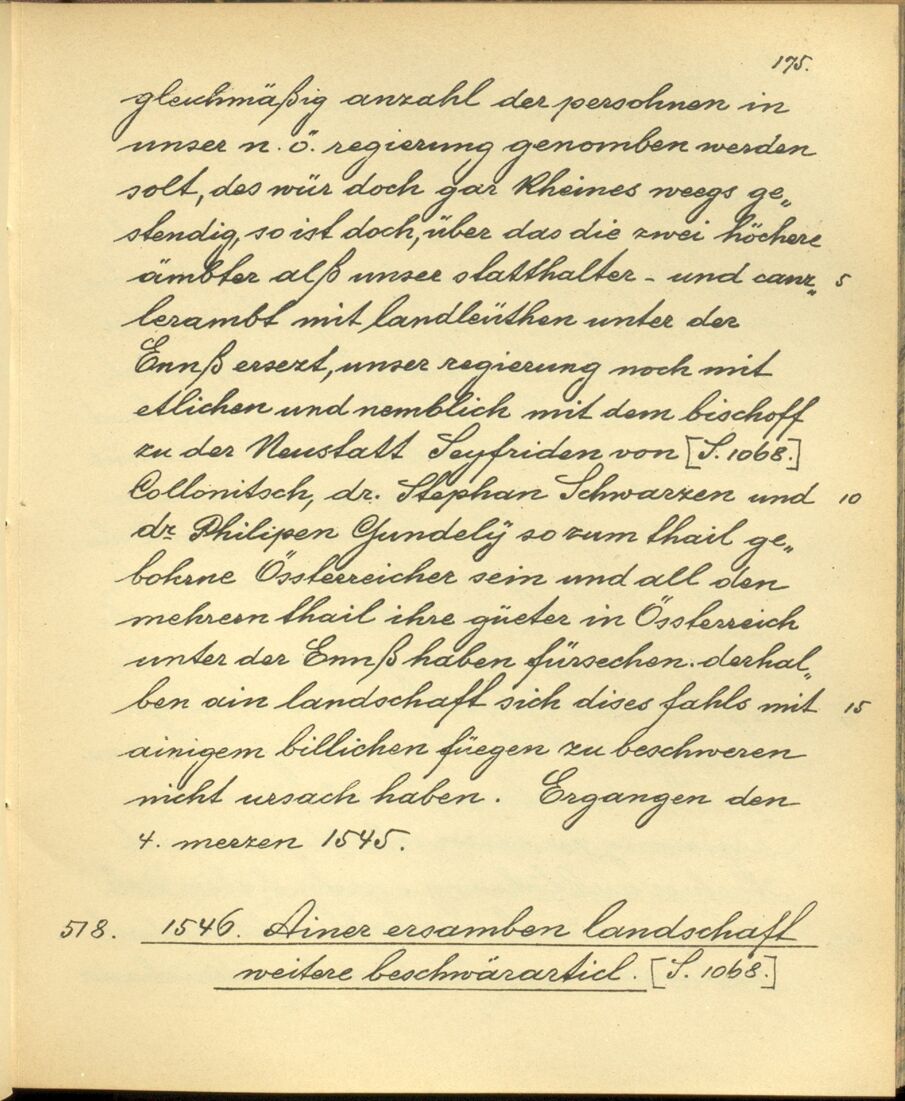 175.
gleichmäßig anzahl der persohnen in
unser n. ö. regierung genomben werden
solt, des wür doch gar kheines weegs ge„
stendig, so ist doch, über das die zwei höchere
ämbter alß unser statthalter- und canz„ 5
lerambt mit landleüthen unter der
Ennß ersezt, unser regierung noch mit
etlichen und nemblich mit dem bischoff
zu der Neustatt Seyfriden von [S. 1068.]
Collonitsch, dr. Stephan Schwarzen und 10
dr. Philipen Gundelÿ so zum thail ge„
bohrne Össterreicher sein und all den
mehrern thail ihre güeter in Össterreich
unter der Ennß haben fürsechen. derhal„
ben ain landschaft sich dises fahls mit 15
ainigem billichen füegen zu beschweren
nicht ursach haben. Ergangen den
4. merzen 1545.
518. 1546. Ainer ersamben landschaft
weitere beschwärarticl. [S. 1068.]